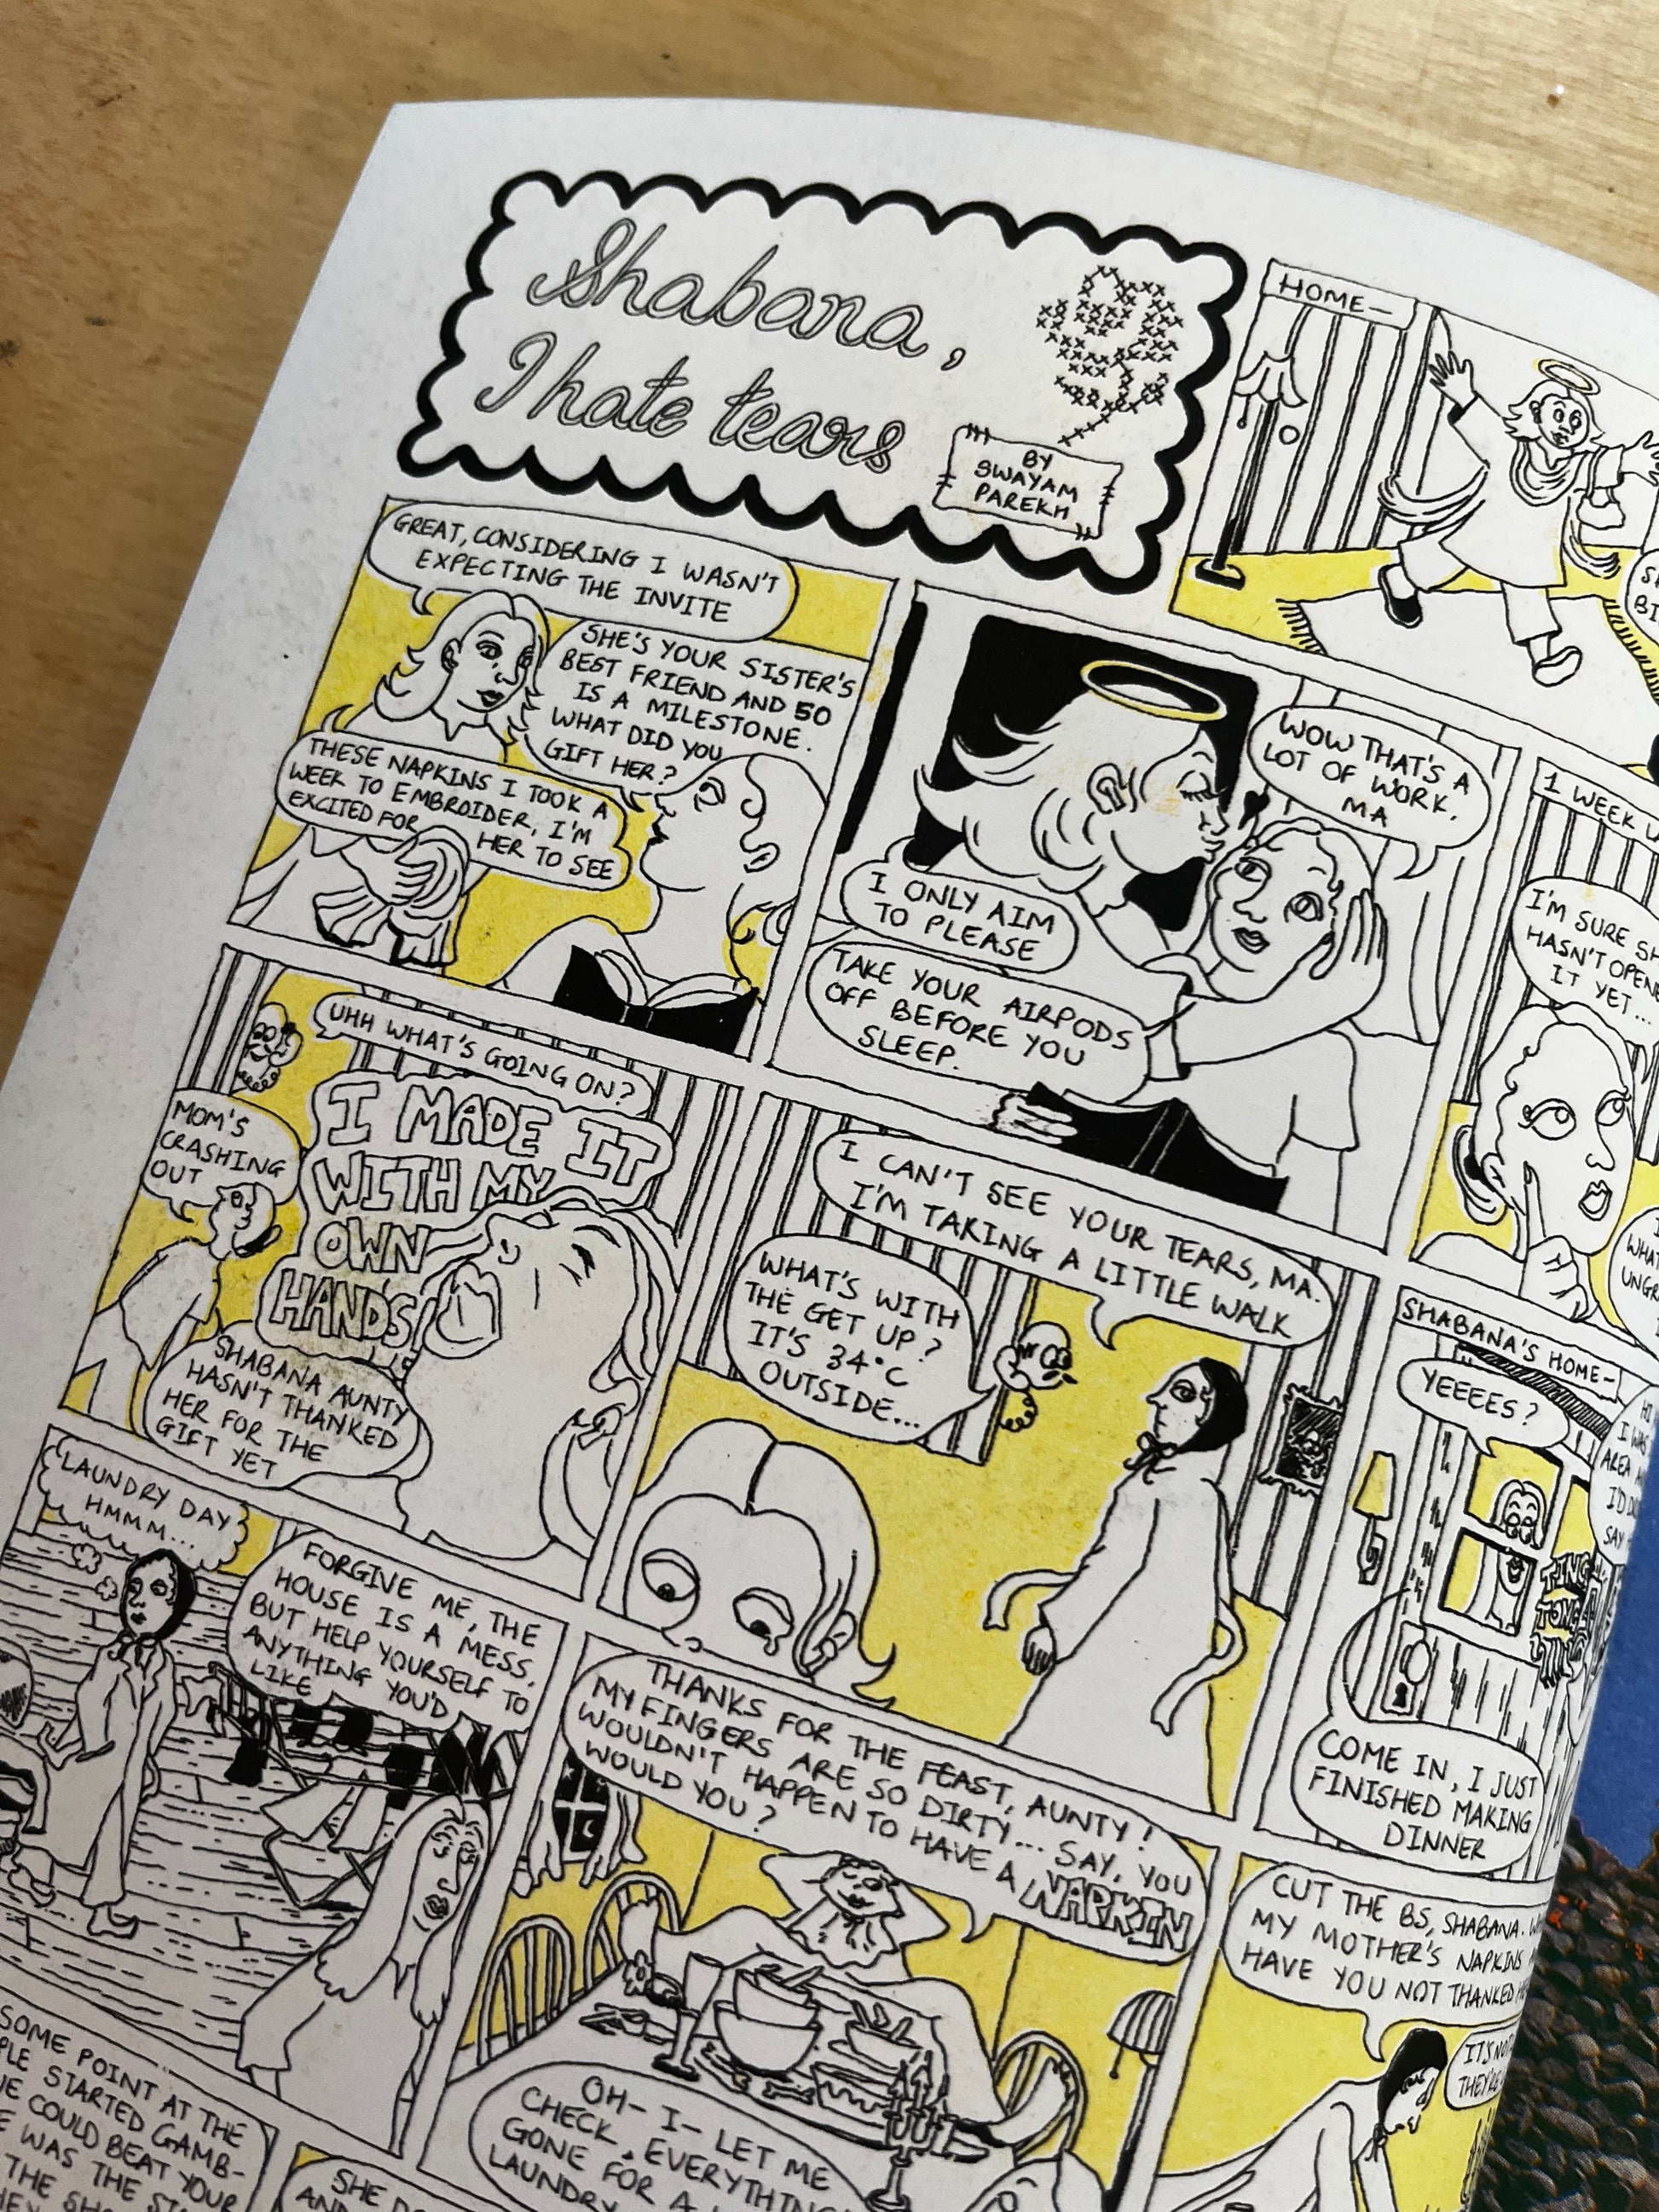 Shabana,
I hate tears
BY
SWAYAM
PAREKH
HOME—
GREAT, CONSIDERING I WASN'T
EXPECTING THE INVITE
SHE'S YOUR SISTER'S
BEST FRIEND AND 50
IS A MILESTONE.
WHAT DID YOU
GIFT HER?
THESE NAPKINS I TOOK A
WEEK TO EMBROIDER, I'M
EXCITED FOR HER TO SEE
WOW THAT'S A
LOT OF WORK,
MA
I ONLY AIM
TO PLEASE
TAKE YOUR AIRPODS
OFF BEFORE YOU
SLEEP.
1 WEEK
I'M SURE
HASN'T
IT YET...
UHH WHAT'S GOING ON?
MOM'S
CRASHING
OUT
I MADE IT
WITH MY
OWN
HANDS!
SHABANA AUNTY
HASN'T THANKED
HER FOR THE
GIFT YET
I CAN'T SEE YOUR TEARS, MA.
I'M TAKING A LITTLE WALK
WHAT'S WITH
THE GET UP?
IT'S 34°C
OUTSIDE...
SHABANA'S HOME—
YEEEES?
HI
I WAS
AREA
I'D
SAY
TING
TONG
COME IN, I JUST
FINISHED MAKING
DINNER
LAUNDRY DAY
HMMM...
FORGIVE ME, THE
HOUSE IS A MESS,
BUT HELP YOURSELF TO
ANYTHING YOU'D
LIKE
THANKS FOR THE FEAST, AUNTY!
MY FINGERS ARE SO DIRTY... SAY, YOU
WOULDN'T HAPPEN TO HAVE A NAPKIN
WOULD YOU?
OH— I— LET ME
CHECK, EVERYTHING
GONE FOR A
LAUNDRY
CUT THE BS, SHABANA.
MY MOTHER'S NAPKINS
HAVE YOU NOT THANKED
IT'S NOT
THEY'RE
SOME POINT AT THE
STARTED GAMB-
COULD BEAT YOUR
WAS THE
THE
SHE
AND